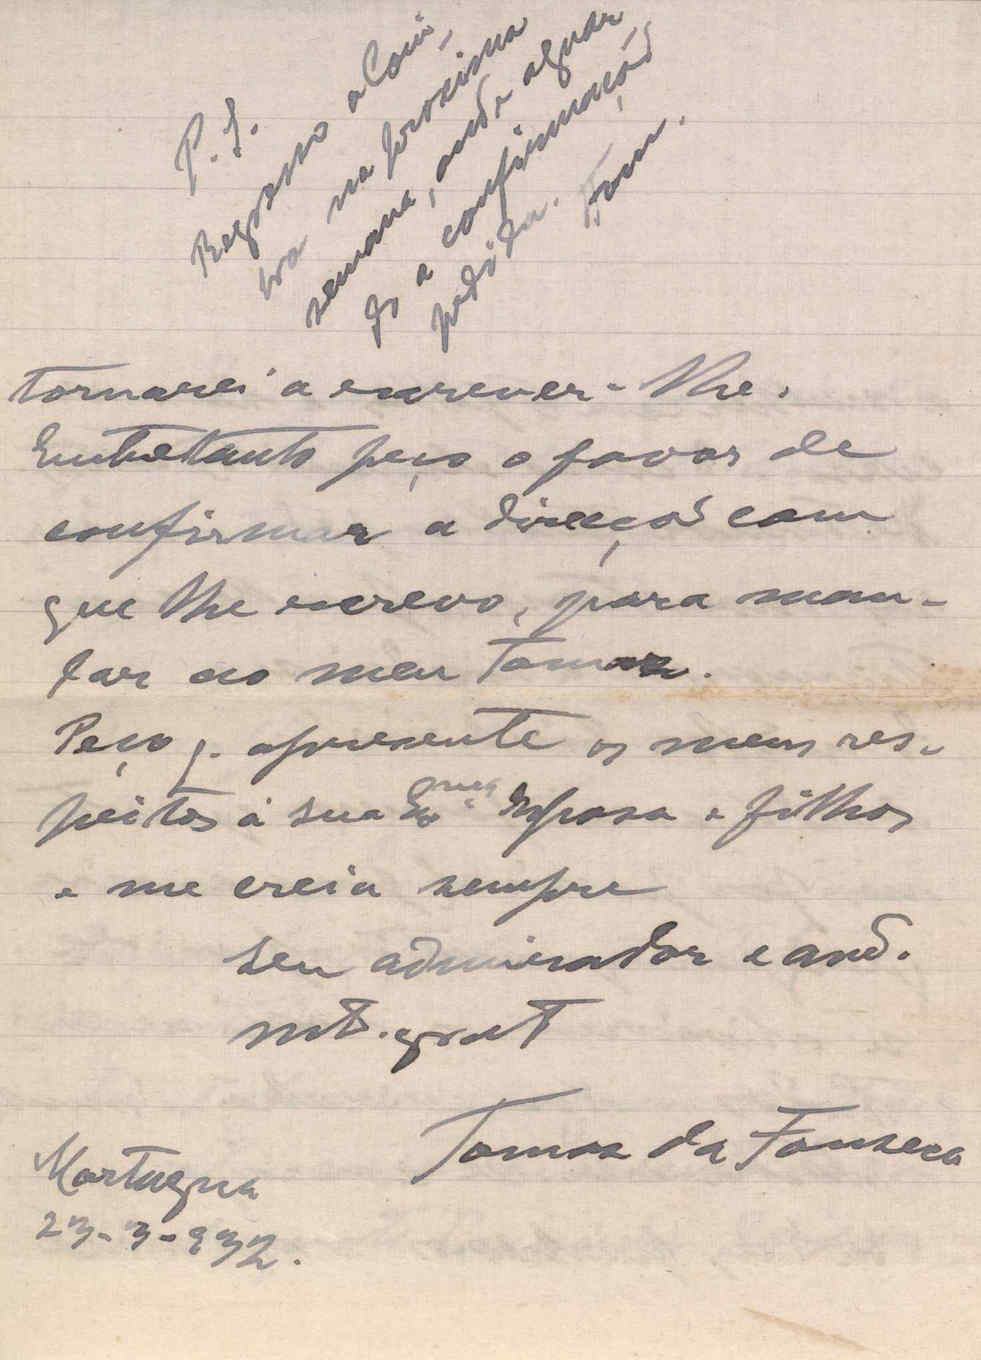 P.S.
Regresso a Coim-
bra na proxima
semana, onde aguar
do a confirmação
pedida. Tom.
tornarei a escrever-lhe.
Entretanto peço o favor de
confirmar a direcção com
que lhe escrevo, para man-
dar ao meu Tomaz.
Peço q. apresente os meus res-
peitos á sua Exma Esposa e filhos
e me creia sempre
seu admirador e amo.
mto. grat
Tomaz da Fonseca
Mortagua
23-3-932.